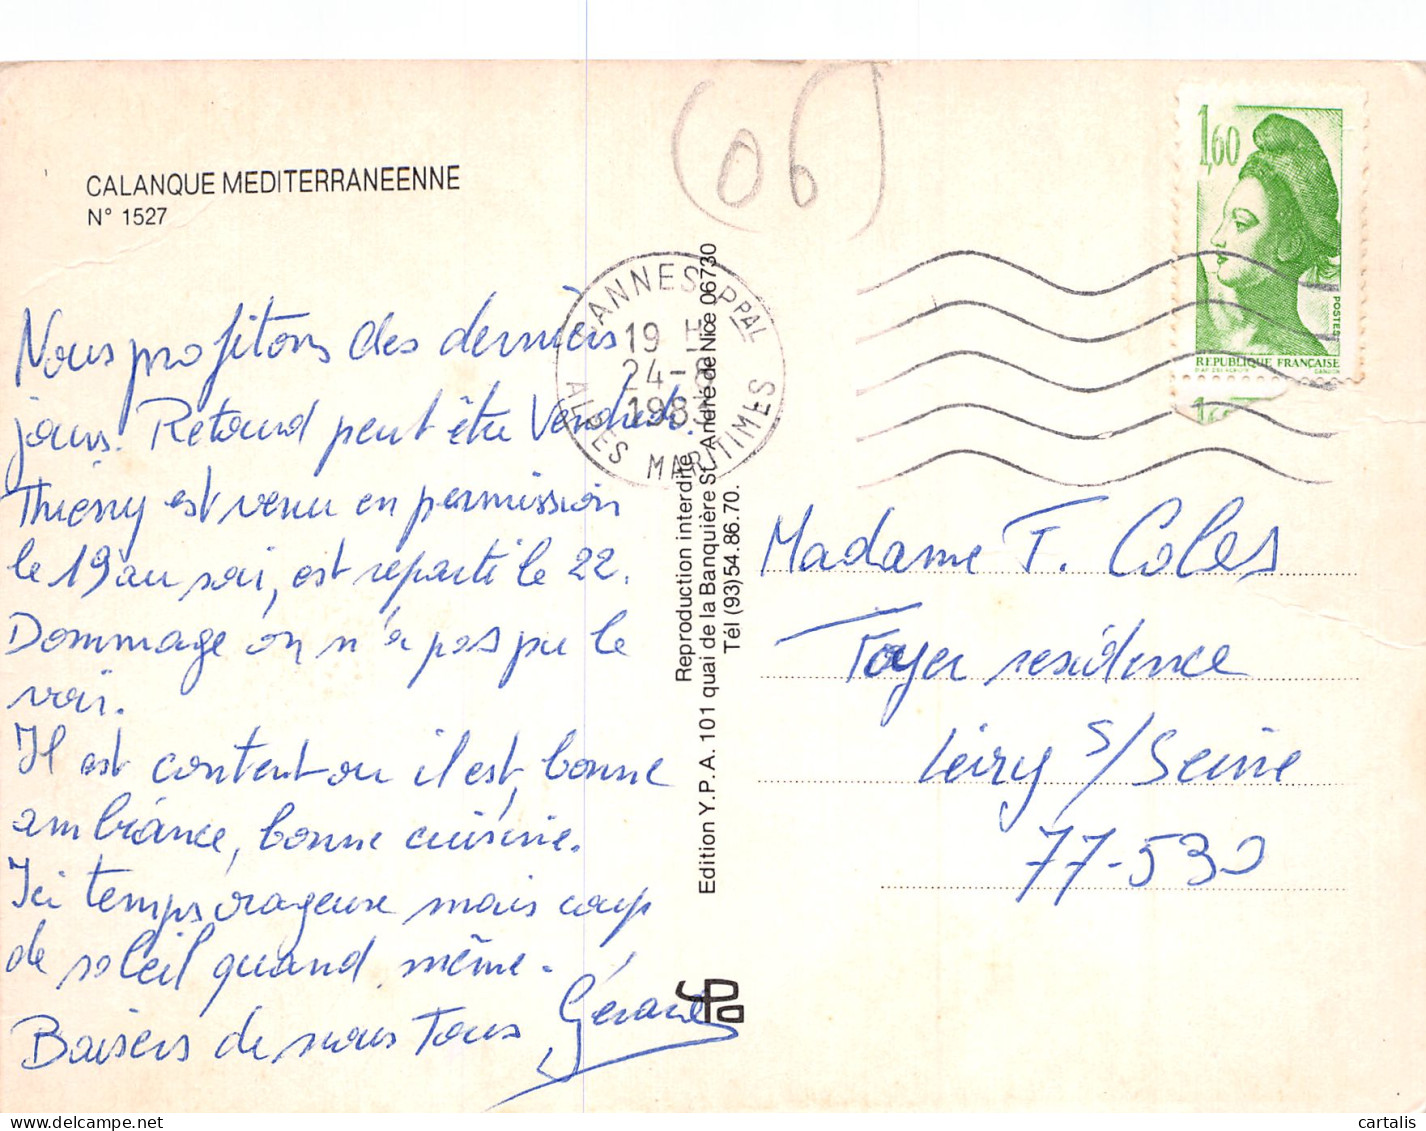 CALANQUE MEDITERRANEENNE
N° 1527
(06)
Nous profitons des derniers
jours. Retour peut être Vendredi.
Thierry est venu en permission
le 19 au soir, est reparti le 22.
Dommage on n'a pas pu le
voir.
Il est content où il est, bonne
ambiance, bonne cuisine.
Ici temps orageux mais coup
de soleil quand même.
Baisers de nous Tous Gérard
CANNES PPAL
19 H
24-8
198
ALPES MARITIMES
Reproduction interdite
Edition Y.P.A. 101 quai de la Banquière St. André de Nice 06730
Tél (93)54.86.70.
ypa
1,60
POSTES
REPUBLIQUE FRANÇAISE
GANDON
Madame T. Coles
Foyer residence
Léiry s/Seine
77-530
cartalis
cartalis.delcampe.net